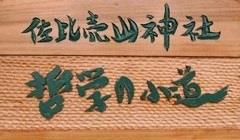 佐比売山神社
哲学の小道